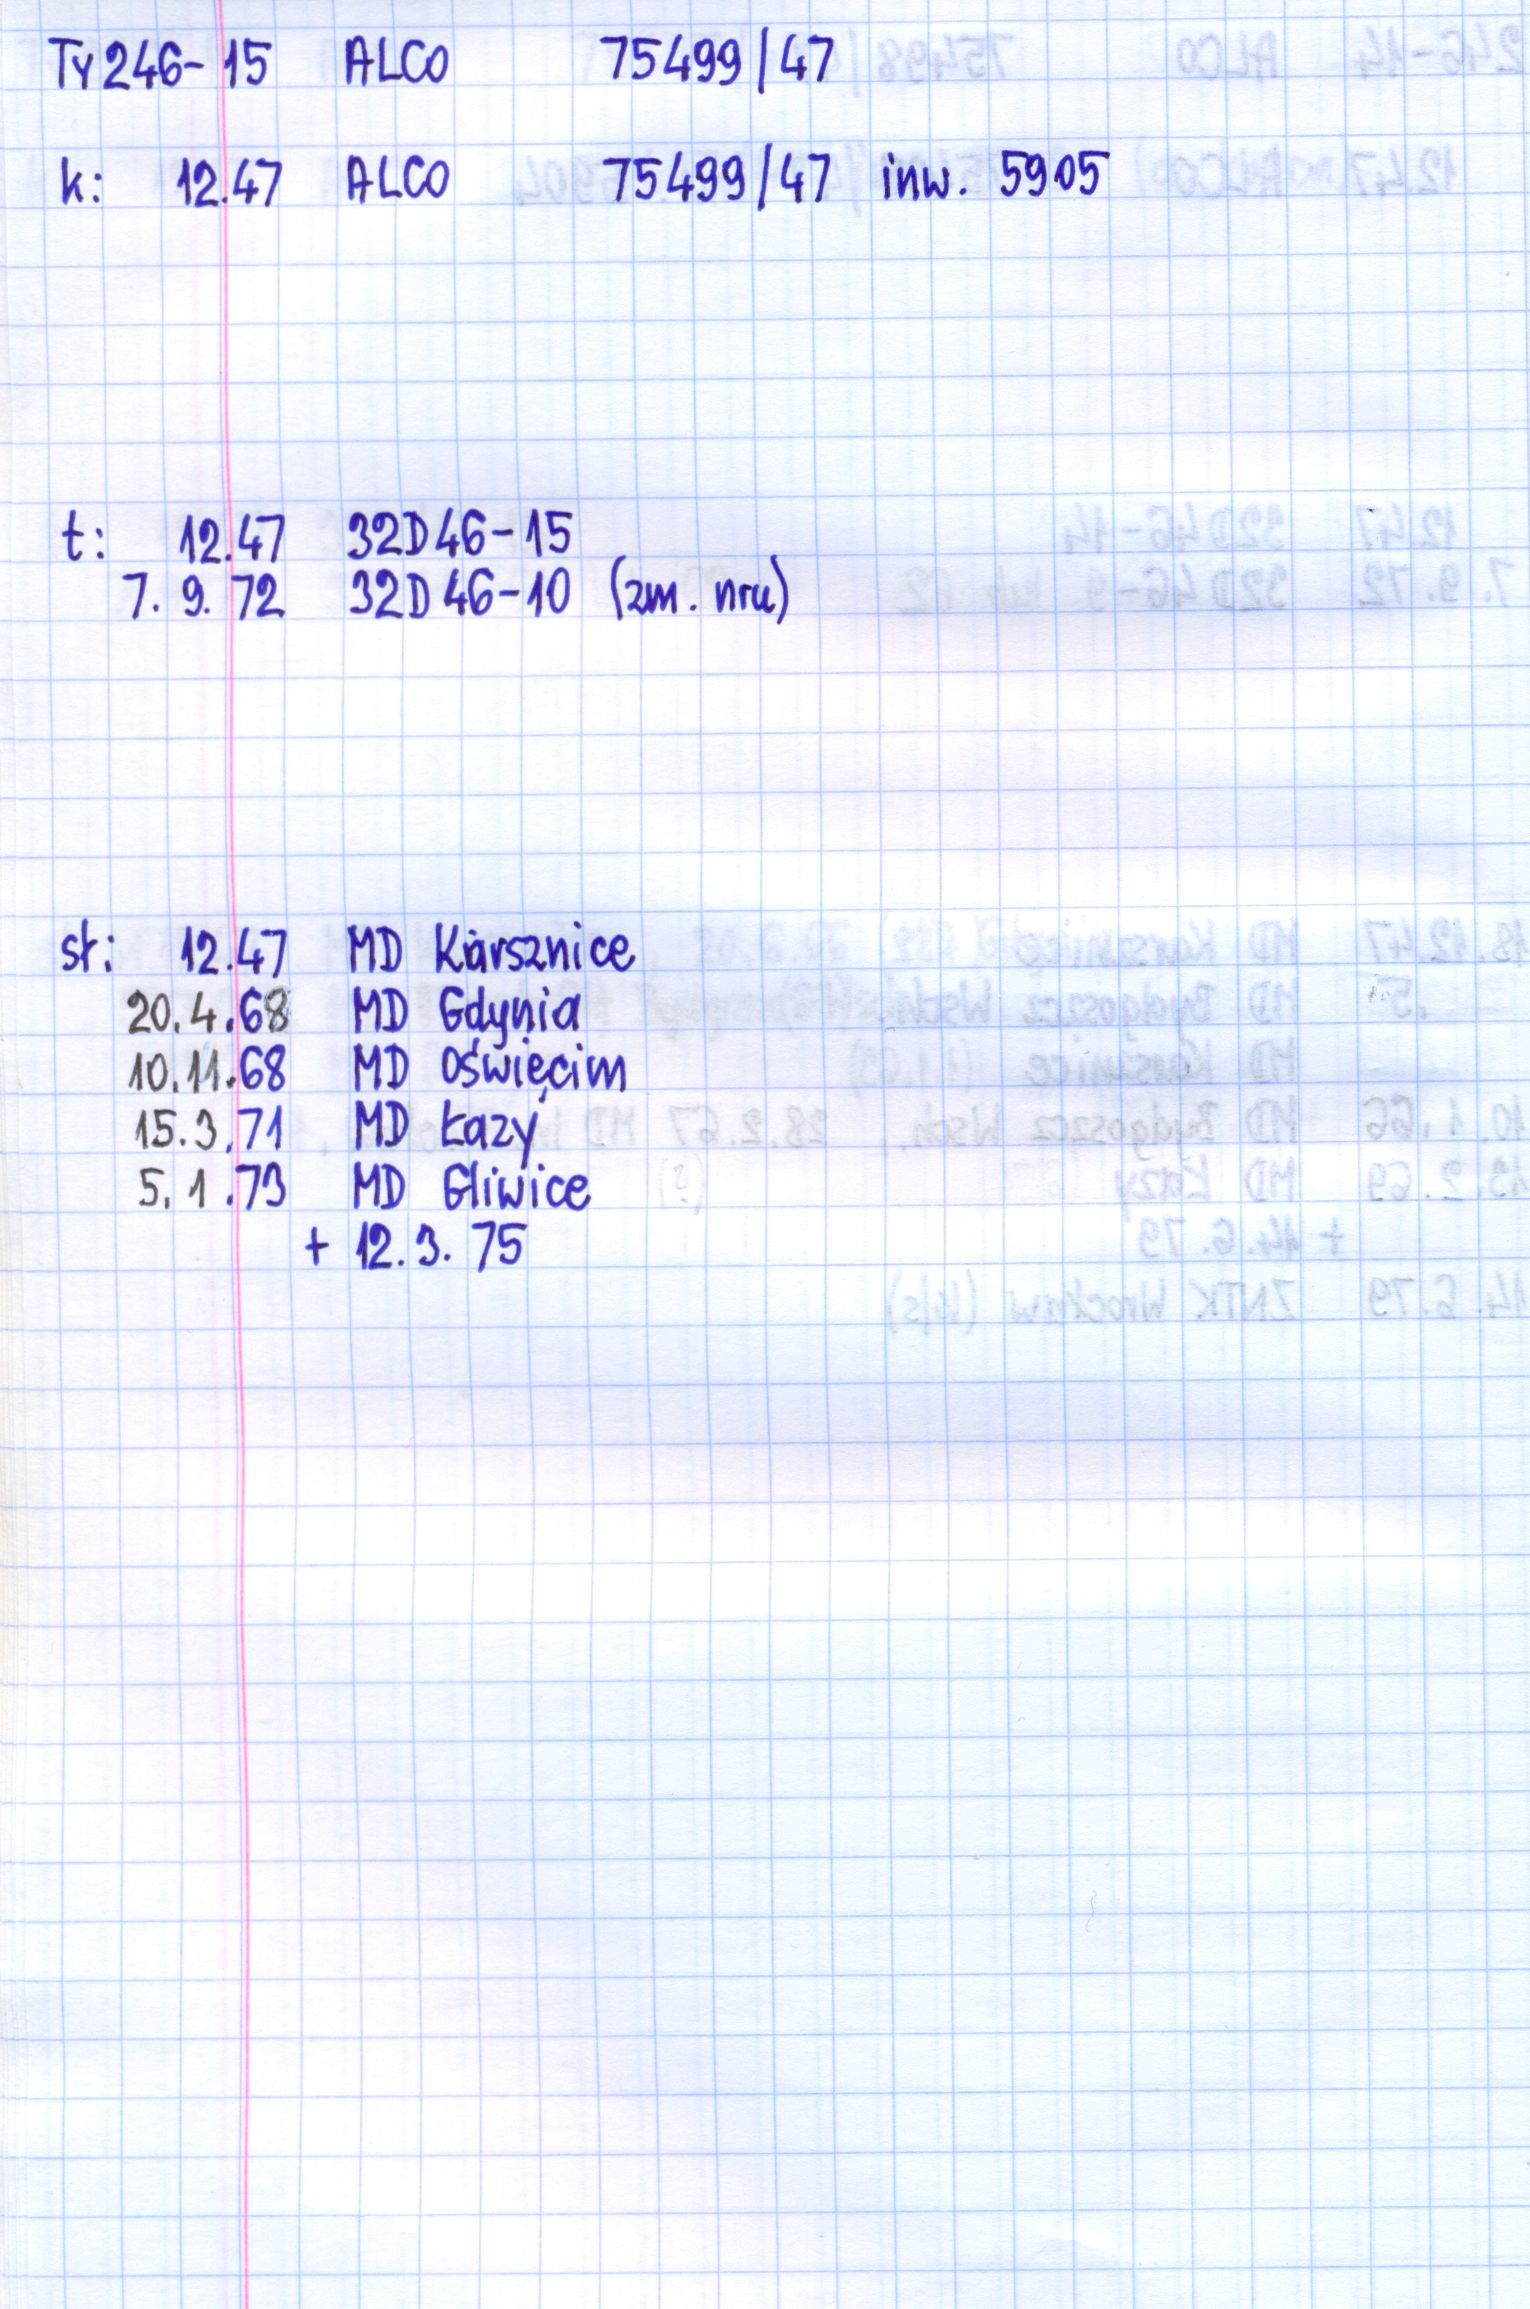 Ty246-15 ALCO 75499/47
k: 12.47 ALCO 75499/47 inw. 5905
t: 12.47 32D46-15
7. 9. 72 32D46-10 (zm. nru)
st: 12.47 MD Karsznice
20.4.68 MD Gdynia
10.11.68 MD Oświęcim
15.3.71 MD Łazy
5.1.73 MD Gliwice
+ 12.3.75